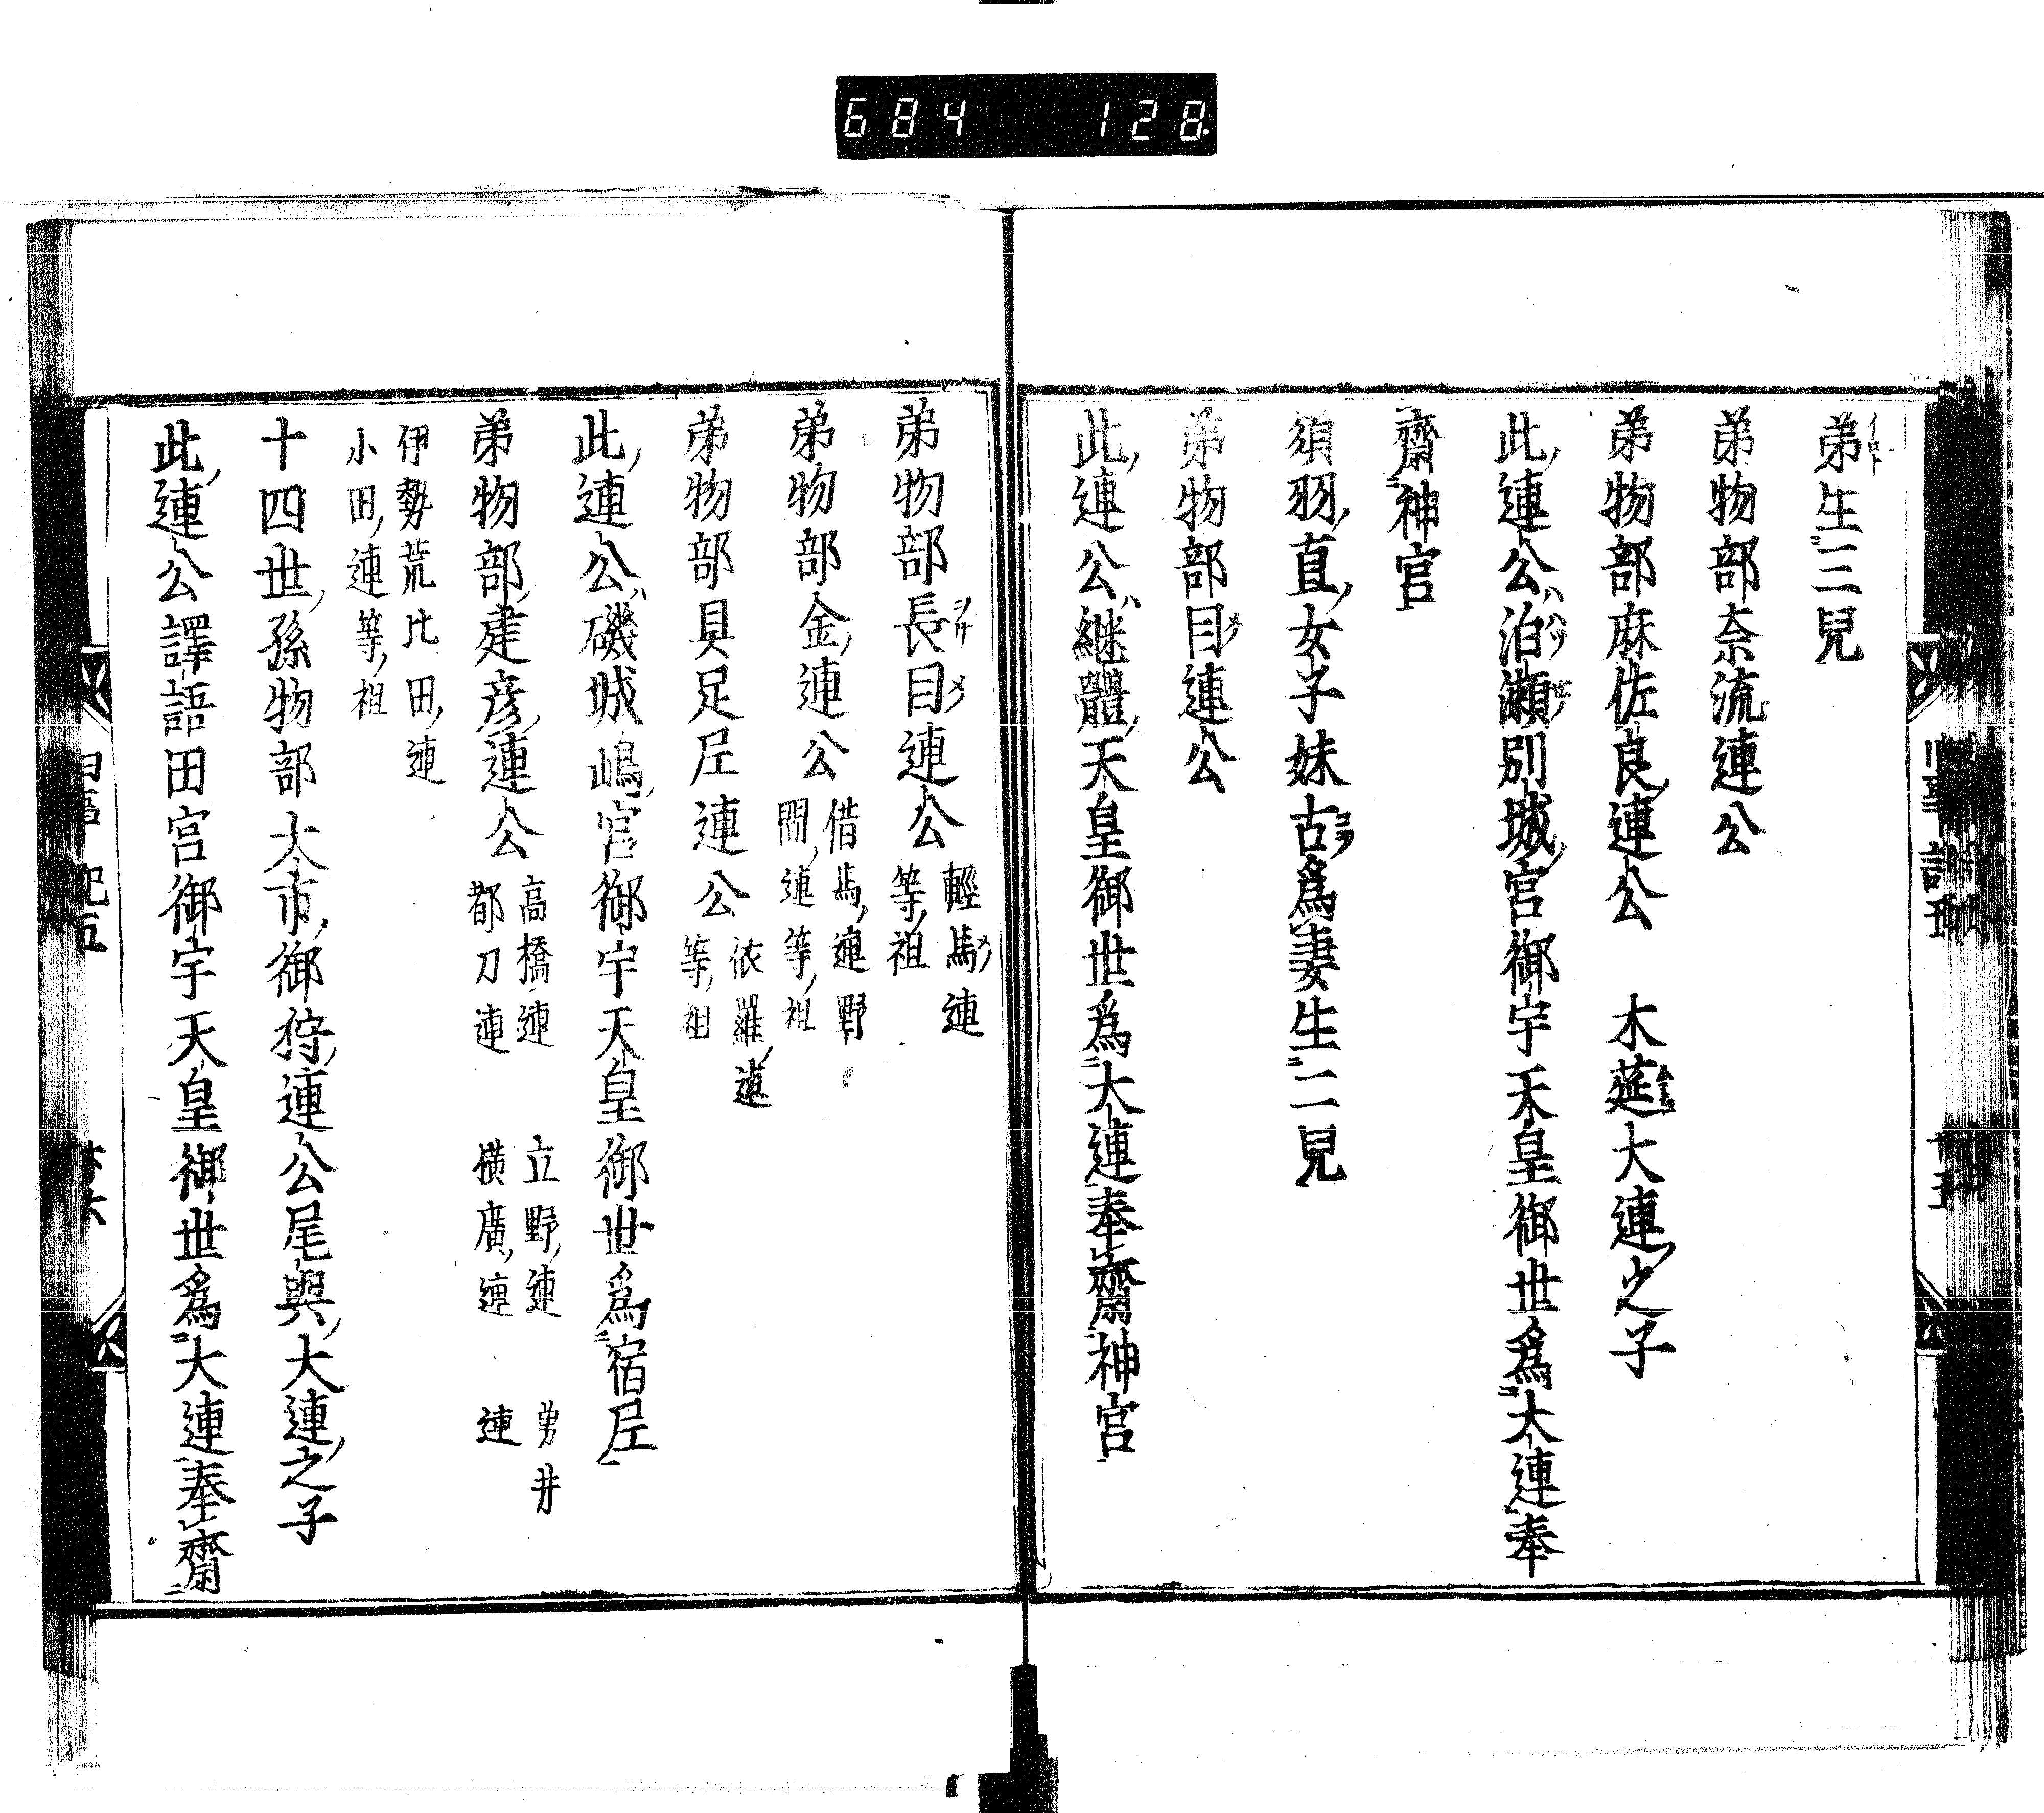 684 128
弟生三兒
弟物部奈流連公
弟物部麻佐良連公 木蓮大連之子
此連公泊瀬別城宮御宇天皇御世爲大連奉
齋神宮
須羽直女子妹古爲妻生二兒
弟物部目連公
此連公継體天皇御世爲大連奉齋神宮
弟物部長目連公 輕馬連
等祖
弟物部金連公 借馬連野
間連等祖
弟物部貝足尼連公 依羅連
等祖
此連公磯城嶋宮御宇天皇御世爲宿尼
弟物部建彦連公 高橋連 立野連 勇井
都刀連 横廣連 連
伊勢荒比田連
小田連等祖
十四世孫物部大市御狩連公尾輿大連之子
此連公譯語田宮御宇天皇御世爲大連奉齋